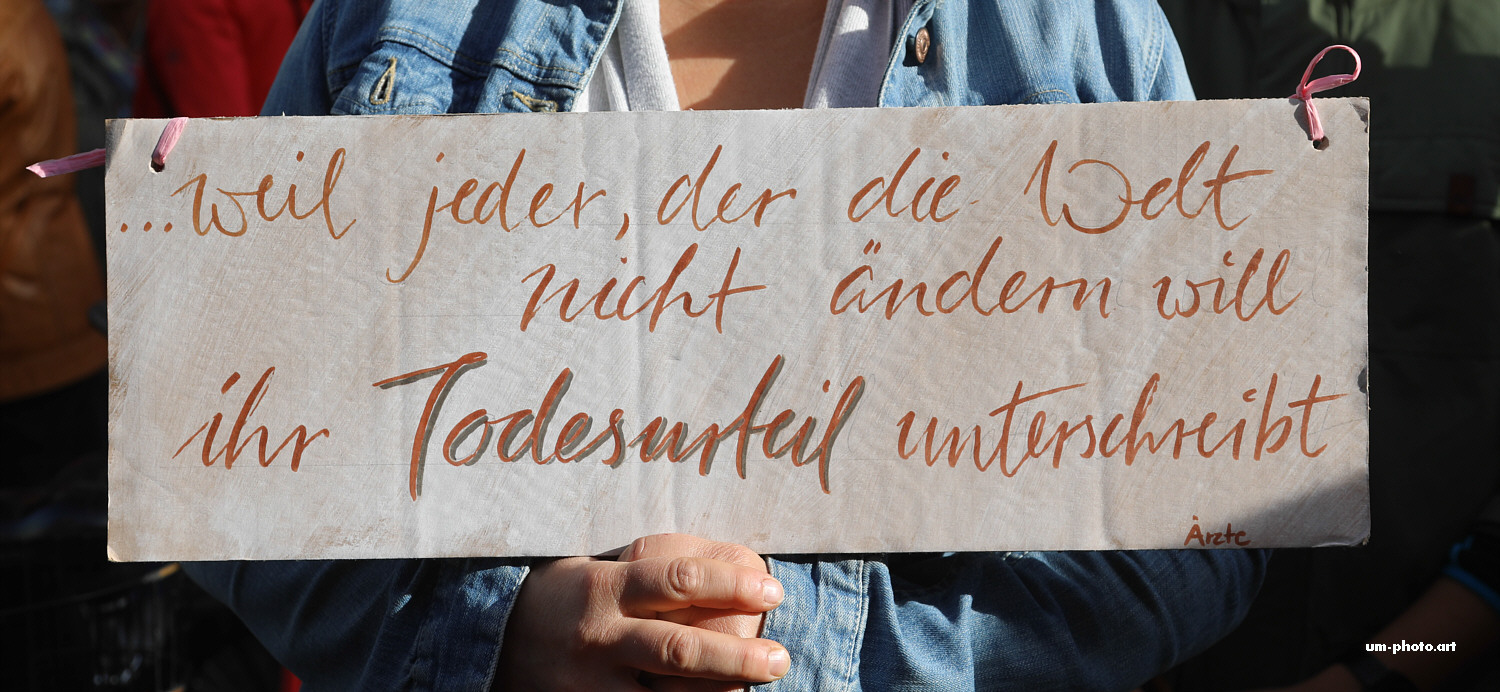 ...weil jeder, der die Welt
nicht ändern will
ihr Todesurteil unterschreibt
Ärzte
um-photo.art